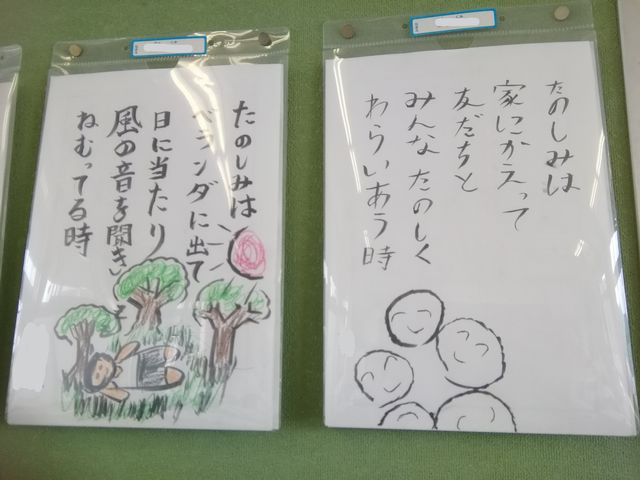 たのしみは
ベランダに出て
日に当たり
風の音を聞き
ねむってる時
たのしみは
家にかえって
友だちと
みんなたのしく
わらいあう時